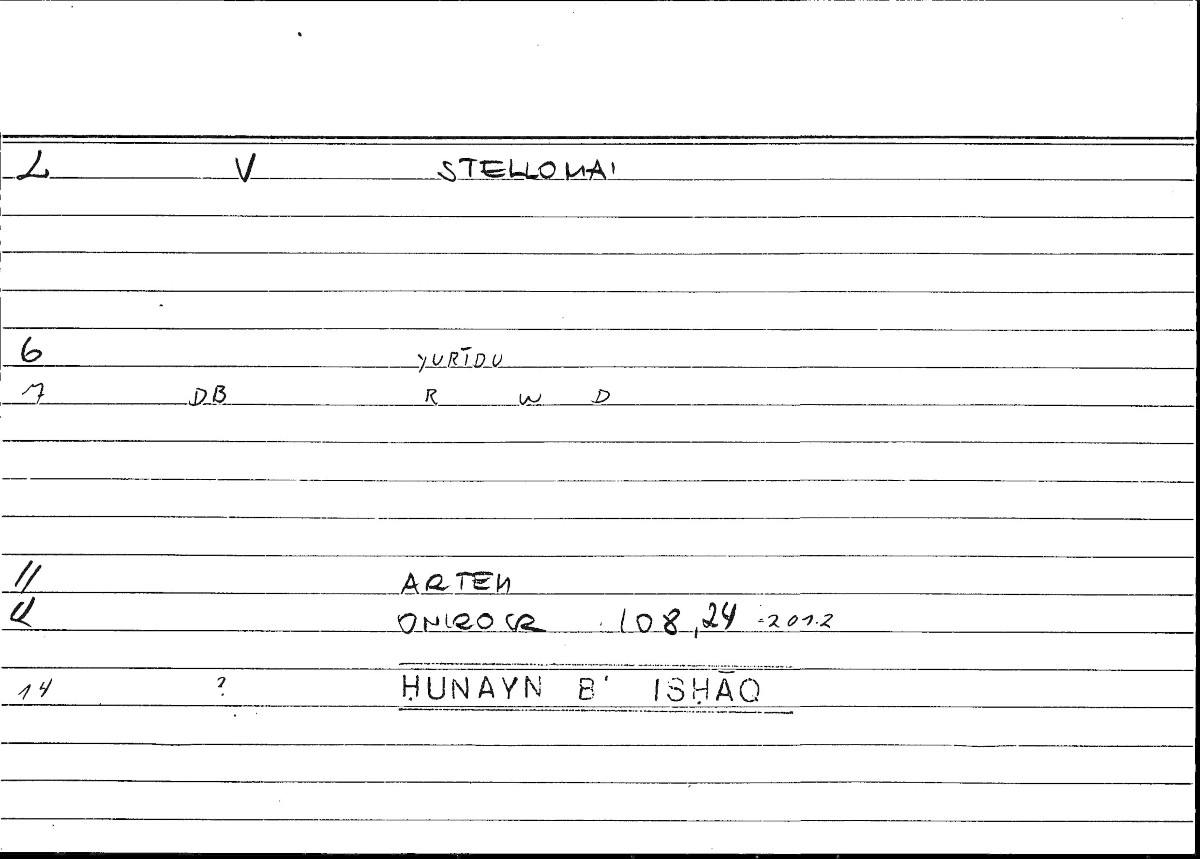 2 V STELLOMAI
6 YURĪDU
7 DB R W D
11 ARTEM
ONIROCR 108,24 =201.2
14 ? ḤUNAYN B' ISḤĀQ